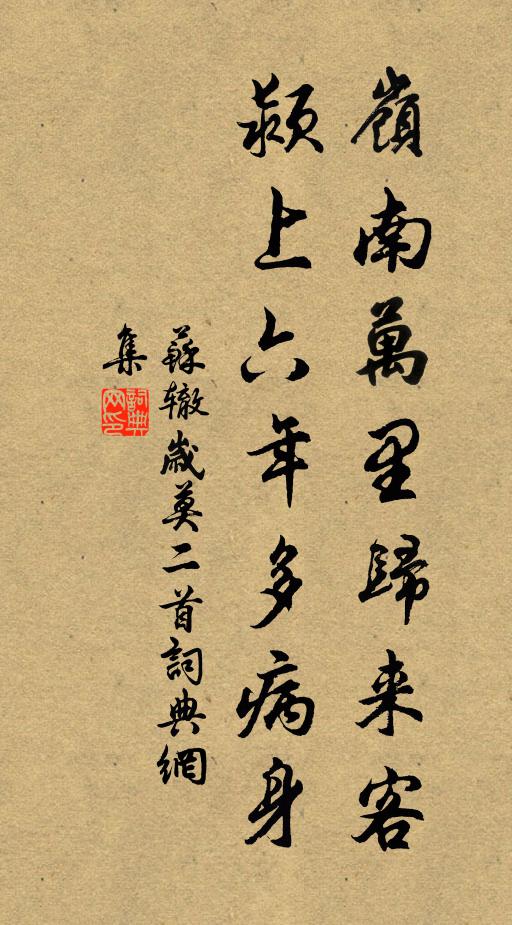 嶺南萬里歸来客
潁上六年多病身
蘇轍歲莫二首詞典網
集
詞典
网印